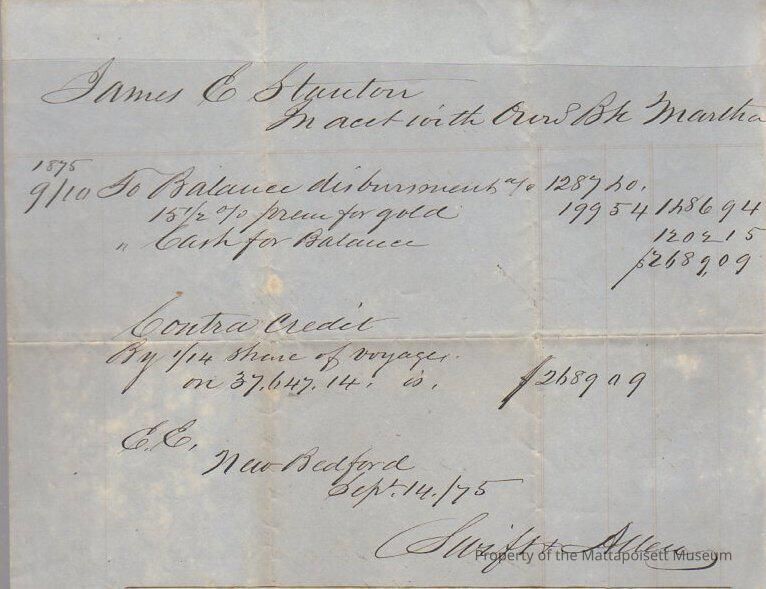 James E Stanton
In acct with Owrs Bk Martha
1875
9/10 To Balance disbursment a/c 1287 40.
15 1/2 % prem for gold 199 54 1486 94
" Cash for Balance 1202 15
$2689,09
Contra Credit
By 1/14 share of voyage.
on 37,647.14. is. $2689 09
E.E.
New Bedford
Sept. 14./75
Swift & Allen
Property of the Mattapoisett Museum